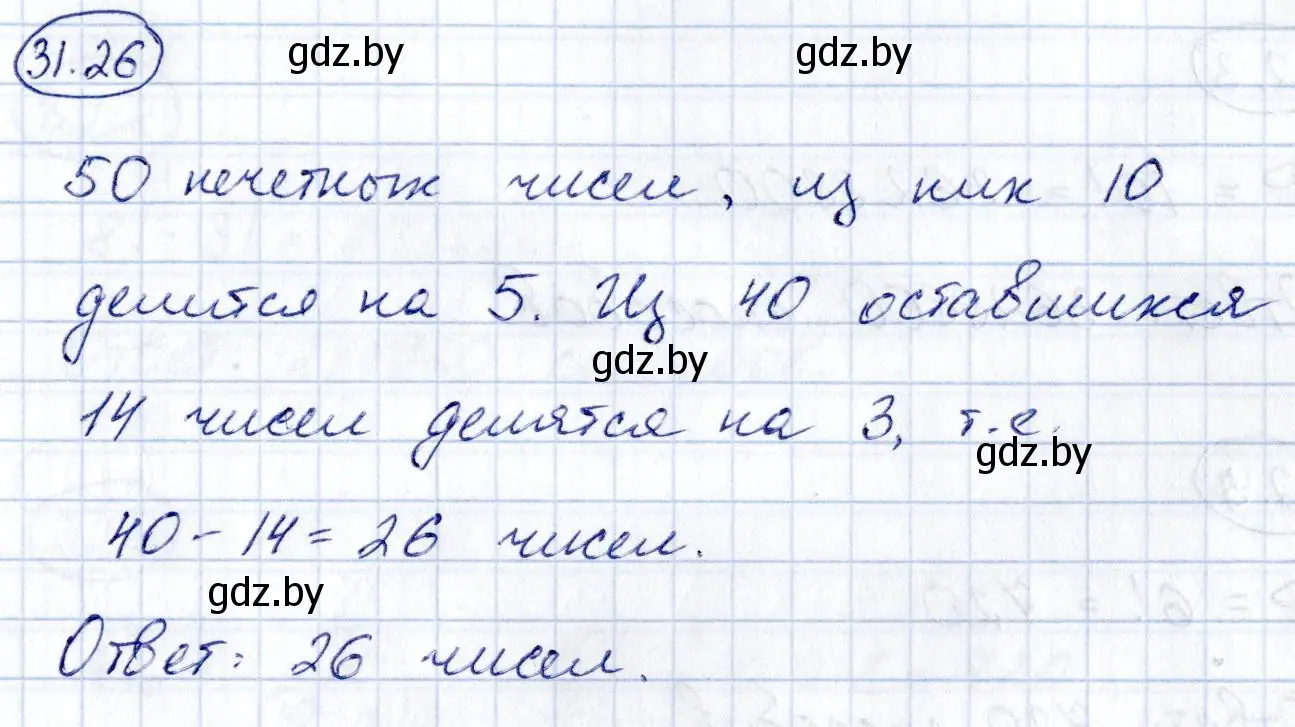 31.26 gdz.by gdz.by
50 нечетных чисел, из них 10
делится на 5. Из 40 оставшихся
gdz.by
14 чисел делятся на 3, т.е.
gdz.by
40 - 14 = 26 чисел.
gdz.by
Ответ: 26 чисел.